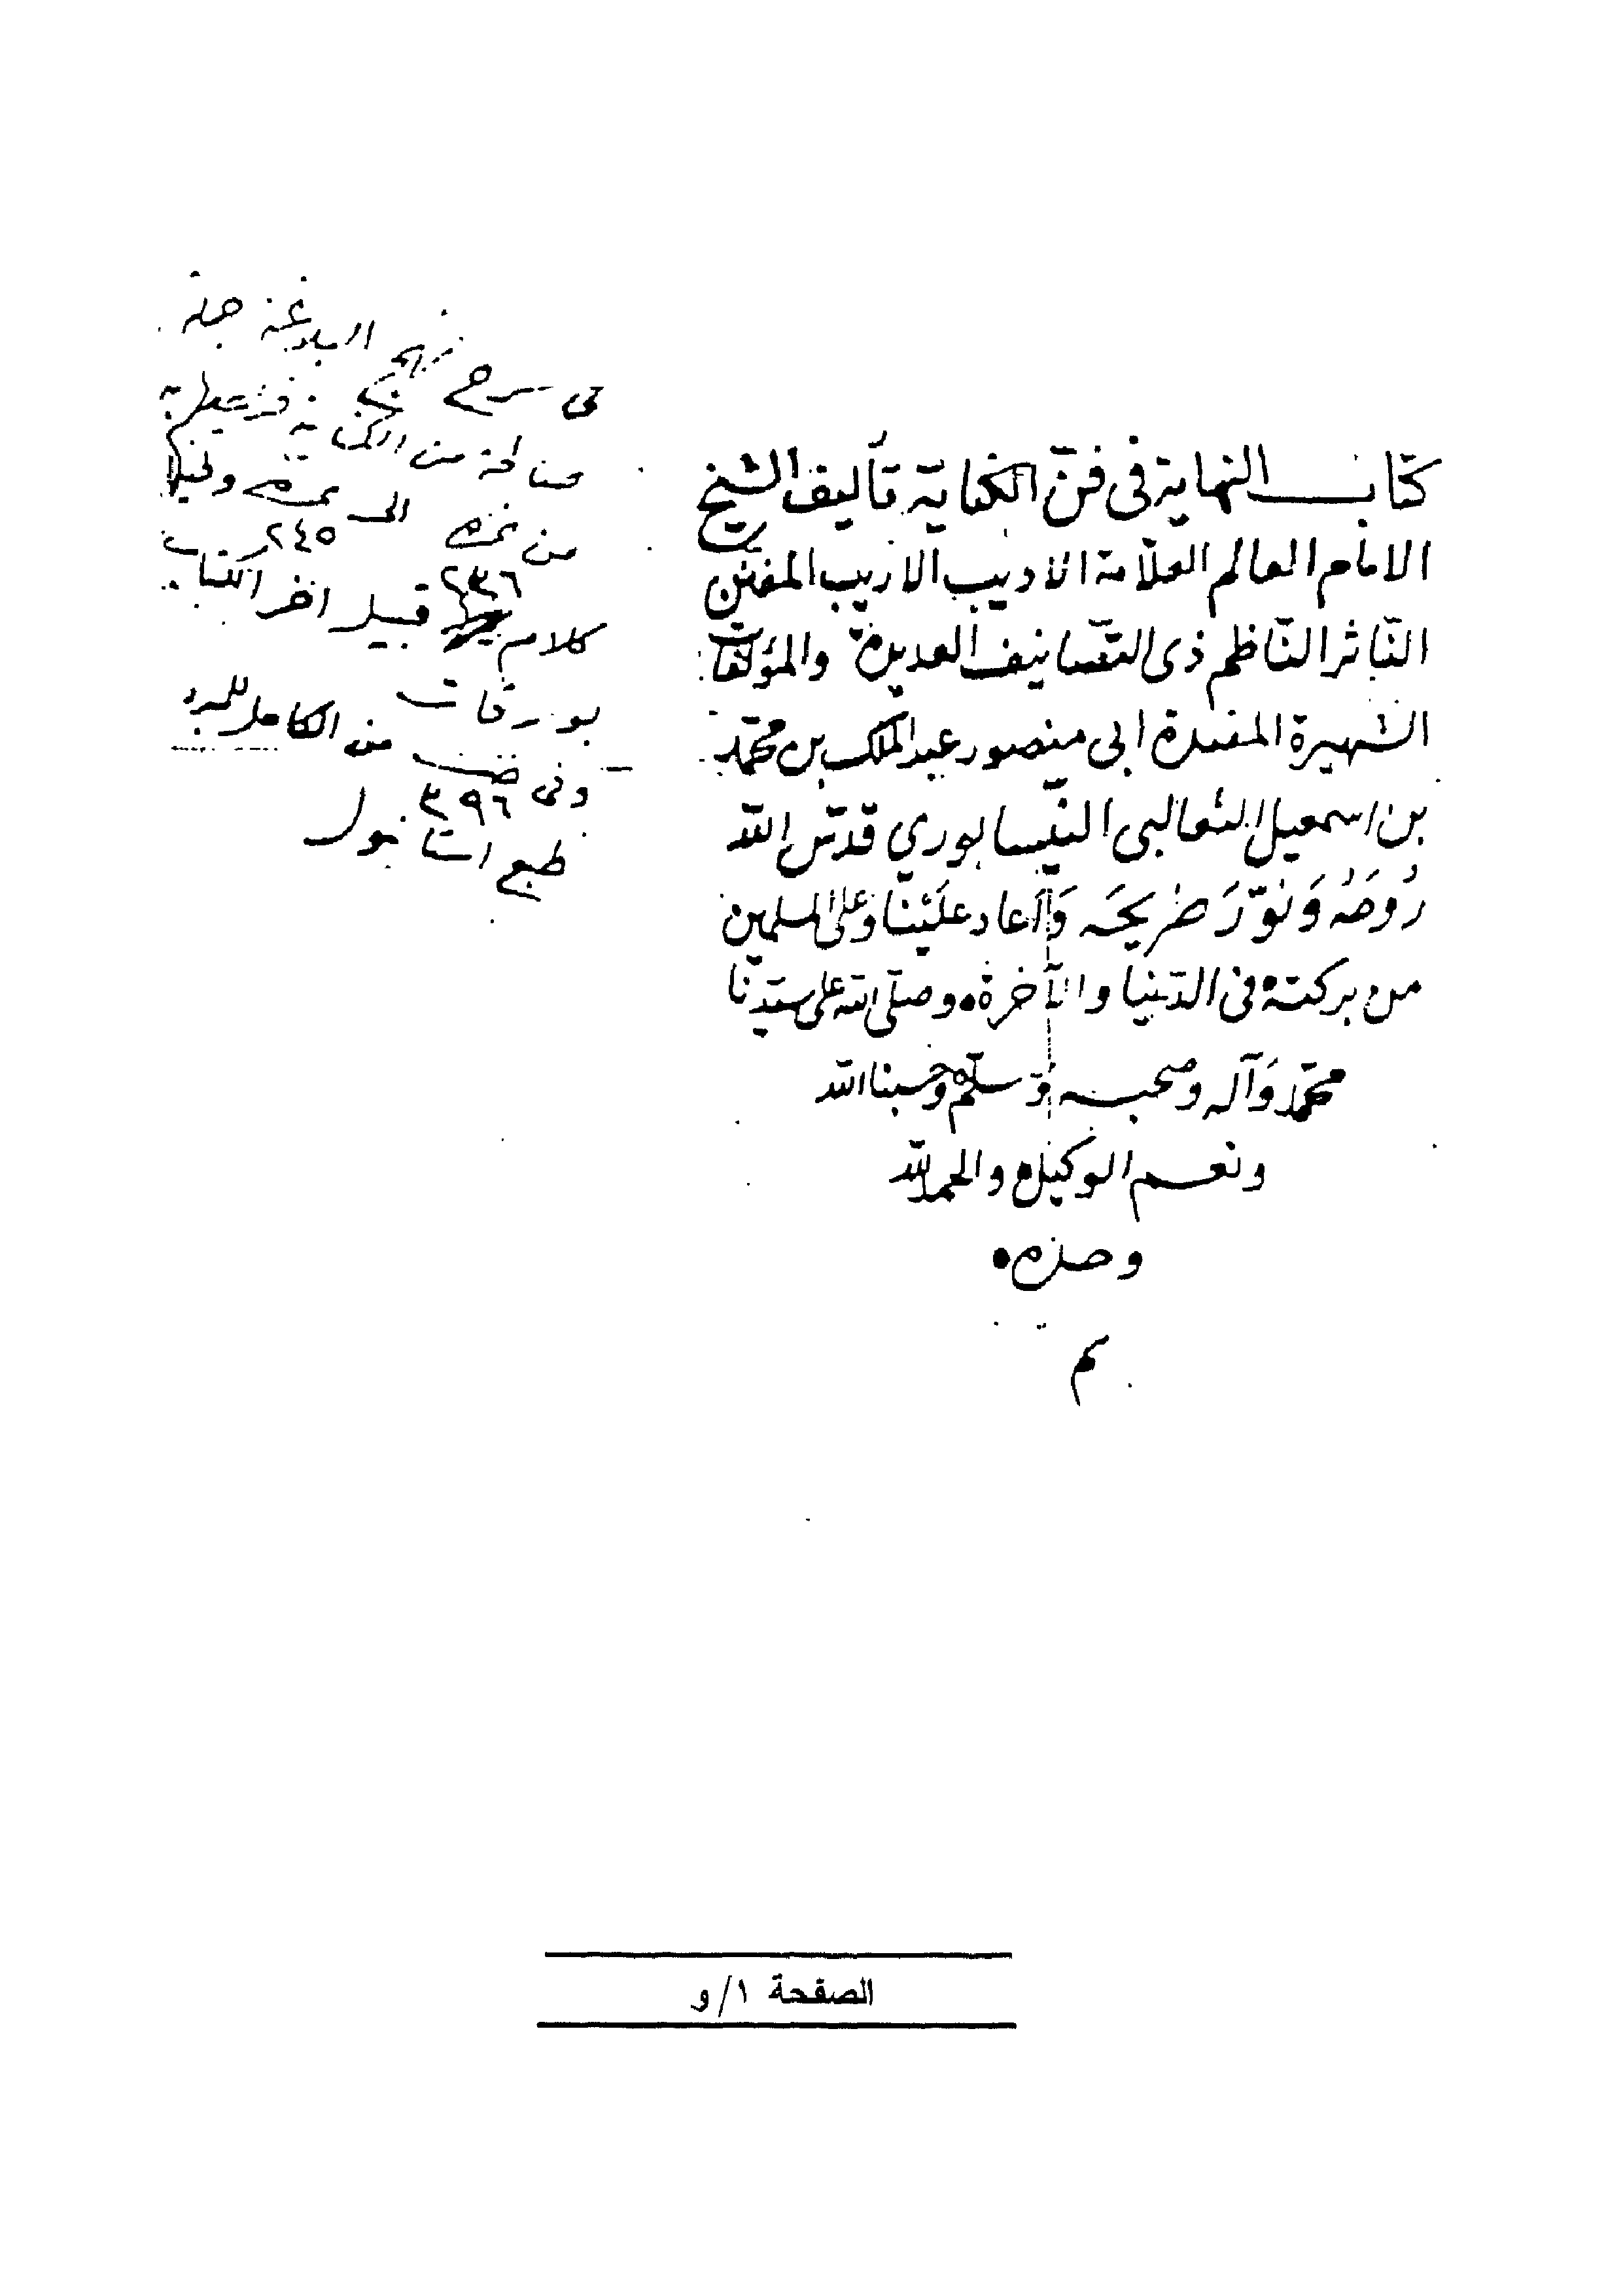 كتاب النهاية في فنّ الكناية تأليف الشيخ
الامام العالم العلّامة الاديب الاريب المفنّن
النّاثر النّاظم ذى التصانيف العديدة والمؤلّفات
الشهيرة المفيدة ابى منصور عبد الملك بن محمّد
بن اسمعيل الثعالبى النّيسابوري قدّس الله
رُوحَهُ وَنَوّرَ ضريحَه وَأعاد علَيْنا وعلى المسلمين
من بركته فى الدّنيا والآخرة • وصلّى الله على سيّدنا
محمّد وَآله وصحبه وَسلّم وحسبنا الله
ونعم الوكيل والحمد لله
وحده •
م
فى شرح نهج البلاغة جملة
صالحة من الكناية
من نمرة الى نمرة
٢٣٦ ٢٤٥
كلام قبيل اخر الكتاب
بورقات
وفى من الكامل للمبرد
٣٩٦
طبع استانبول
الصفحة ١/و